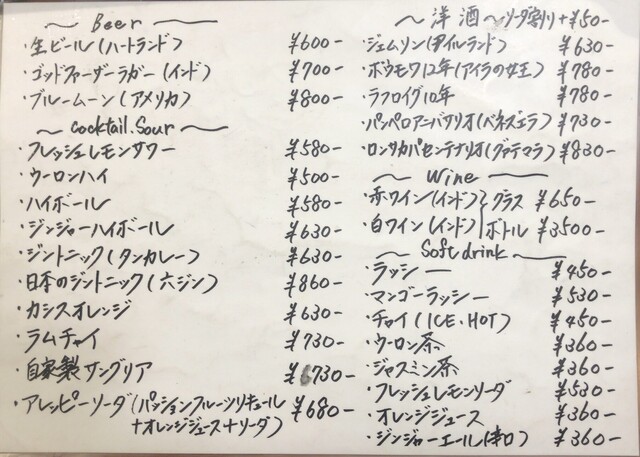 ～ Beer ～
・生ビール(ハートランド) ¥600-
・ゴッドファーザーラガー(インド) ¥700-
・ブルームーン(アメリカ) ¥800-
～ Cocktail.Sour ～
・フレッシュレモンサワー ¥580-
・ウーロンハイ ¥500-
・ハイボール ¥580-
・ジンジャーハイボール ¥630-
・ジントニック(タンカレー) ¥630-
・日本のジントニック(六ジン) ¥860-
・カシスオレンジ ¥630-
・ラムチャイ ¥730-
・自家製サングリア ¥730-
・アレッピーソーダ(パッションフルーツリキュール ¥680-
+オレンジジュース+ソーダ)
～洋酒～ソーダ割り+¥50-
・ジェムソン(アイルランド) ¥630-
・ボウモワ12年(アイラの女王) ¥780-
・ラフロイグ10年 ¥780-
・パンペロアニバサリオ(ベネズエラ) ¥730-
・ロンサカパセンテナリオ(グァテマラ) ¥830-
～ Wine ～
・赤ワイン(インド) グラス ¥650-
・白ワイン(インド) ボトル ¥3500-
～ Soft drink ～
・ラッシー ¥450-
・マンゴーラッシー ¥530-
・チャイ(ICE・HOT) ¥450-
・ウーロン茶 ¥360-
・ジャスミン茶 ¥360-
・フレッシュレモンソーダ ¥530-
・オレンジジュース ¥360-
・ジンジャーエール(辛口) ¥360-